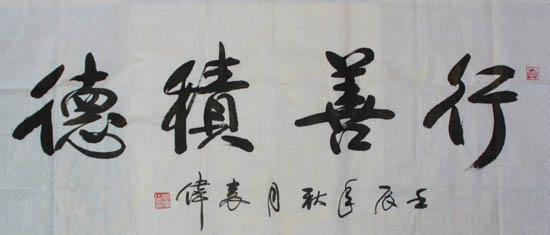 行善積德
壬辰年秋月偉